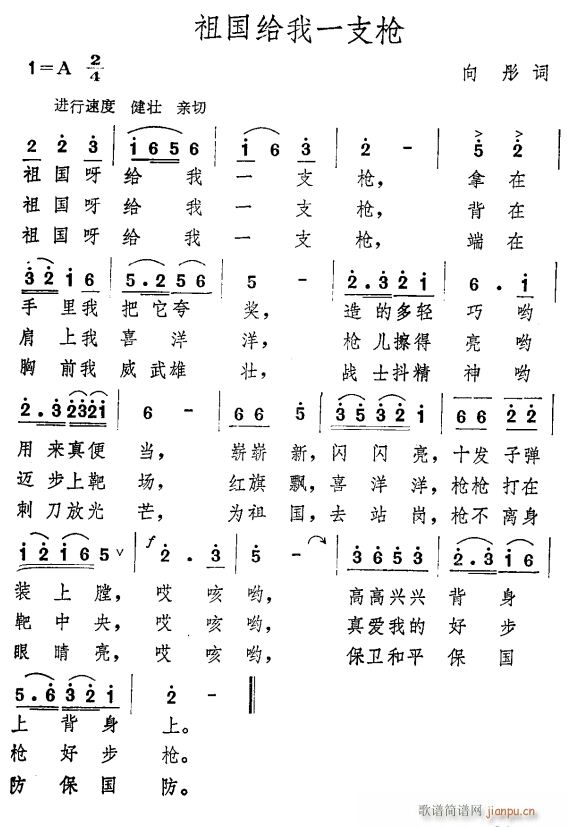 祖国给我一支枪
1=A 2/4
向 彤 词
进行速度 健壮 亲切
2 2 3 1 6 5 6 1 6 3 2 - 5 2
祖国呀给我一支枪，拿在
祖国呀给我一支枪，背在
祖国呀给我一支枪，端在
3 2 1 6 5 . 2 5 6 5 - 2 . 3 2 1 6 . 1
手里我把它夸奖，造的多轻巧哟
肩上我喜洋洋，枪儿擦得亮哟
胸前我威武雄壮，战士抖精神哟
2 . 3 2 3 2 1 6 - 6 6 5 3 5 3 2 1 6 6 2 2
用来真便当，崭崭新，闪闪亮，十发子弹
迈步上靶场，红旗飘，喜洋洋，枪枪打在
刺刀放光芒，为祖国，去站岗，枪不离身
1 2 1 6 5 f 2 . 3 5 - 3 6 5 3 2 . 3 1 6
装上膛，哎咳哟，高高兴兴背身
靶中央，哎咳哟，真爱我的好步
眼睛亮，哎咳哟，保卫和平保国
5 . 6 3 2 1 2 -
上背身上。
枪好步枪。
防保国防。
歌谱简谱网
jianpu.cn